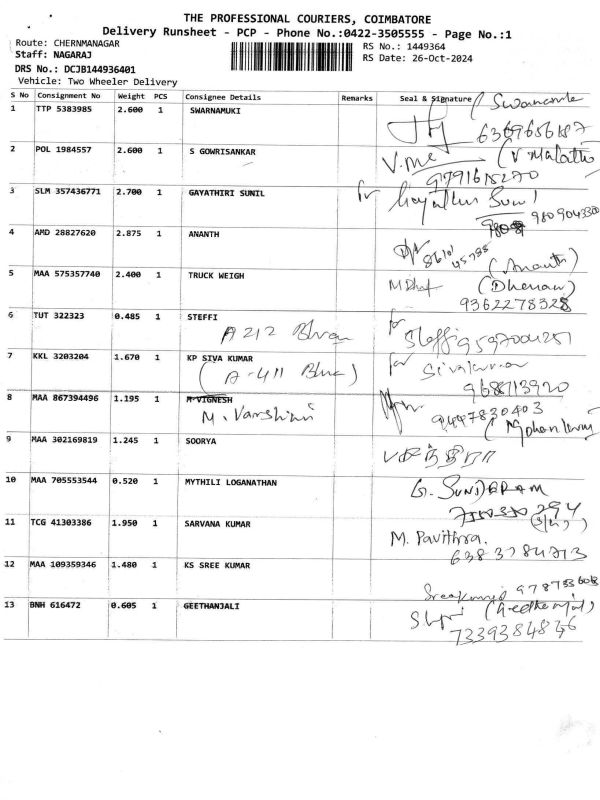 THE PROFESSIONAL COURIERS, COIMBATORE
Delivery Runsheet - PCP - Phone No.:0422-3505555 - Page No.:1
Route: CHERNMANAGAR
RS No.: 1449364
Staff: NAGARAJ
RS Date: 26-Oct-2024
DRS No.: DCJB144936401
Vehicle: Two Wheeler Delivery
S No Consignment No Weight PCS Consignee Details Remarks Seal & Signature
1 TTP 5383985 2.600 1 SWARNAMUKI
2 POL 1984557 2.600 1 S GOWRISANKAR
V. (V Malathi)
9791615270
3 SLM 357436771 2.700 1 GAYATHIRI SUNIL for Gayathri Sunil
4 AMD 28827620 2.875 1 ANANTH
(Ananth)
5 MAA 575357740 2.400 1 TRUCK WEIGH
9362278328
6 TUT 322323 0.485 1 STEFFI for Steffi
A 212
7 KKL 3203204 1.670 1 KP SIVA KUMAR for Sivakumar
(A-411
9688713920
8 MAA 867394496 1.195 1 M VIGNESH
M. Varshini
9447830403
9 MAA 302169819 1.245 1 SOORYA
10 MAA 705553544 0.520 1 MYTHILI LOGANATHAN G. SUNDARAM
11 TCG 41303386 1.950 1 SARVANA KUMAR M. Pavithra.
12 MAA 109359346 1.480 1 KS SREE KUMAR
13 BNH 616472 0.605 1 GEETHANJALI (Geethanjali)